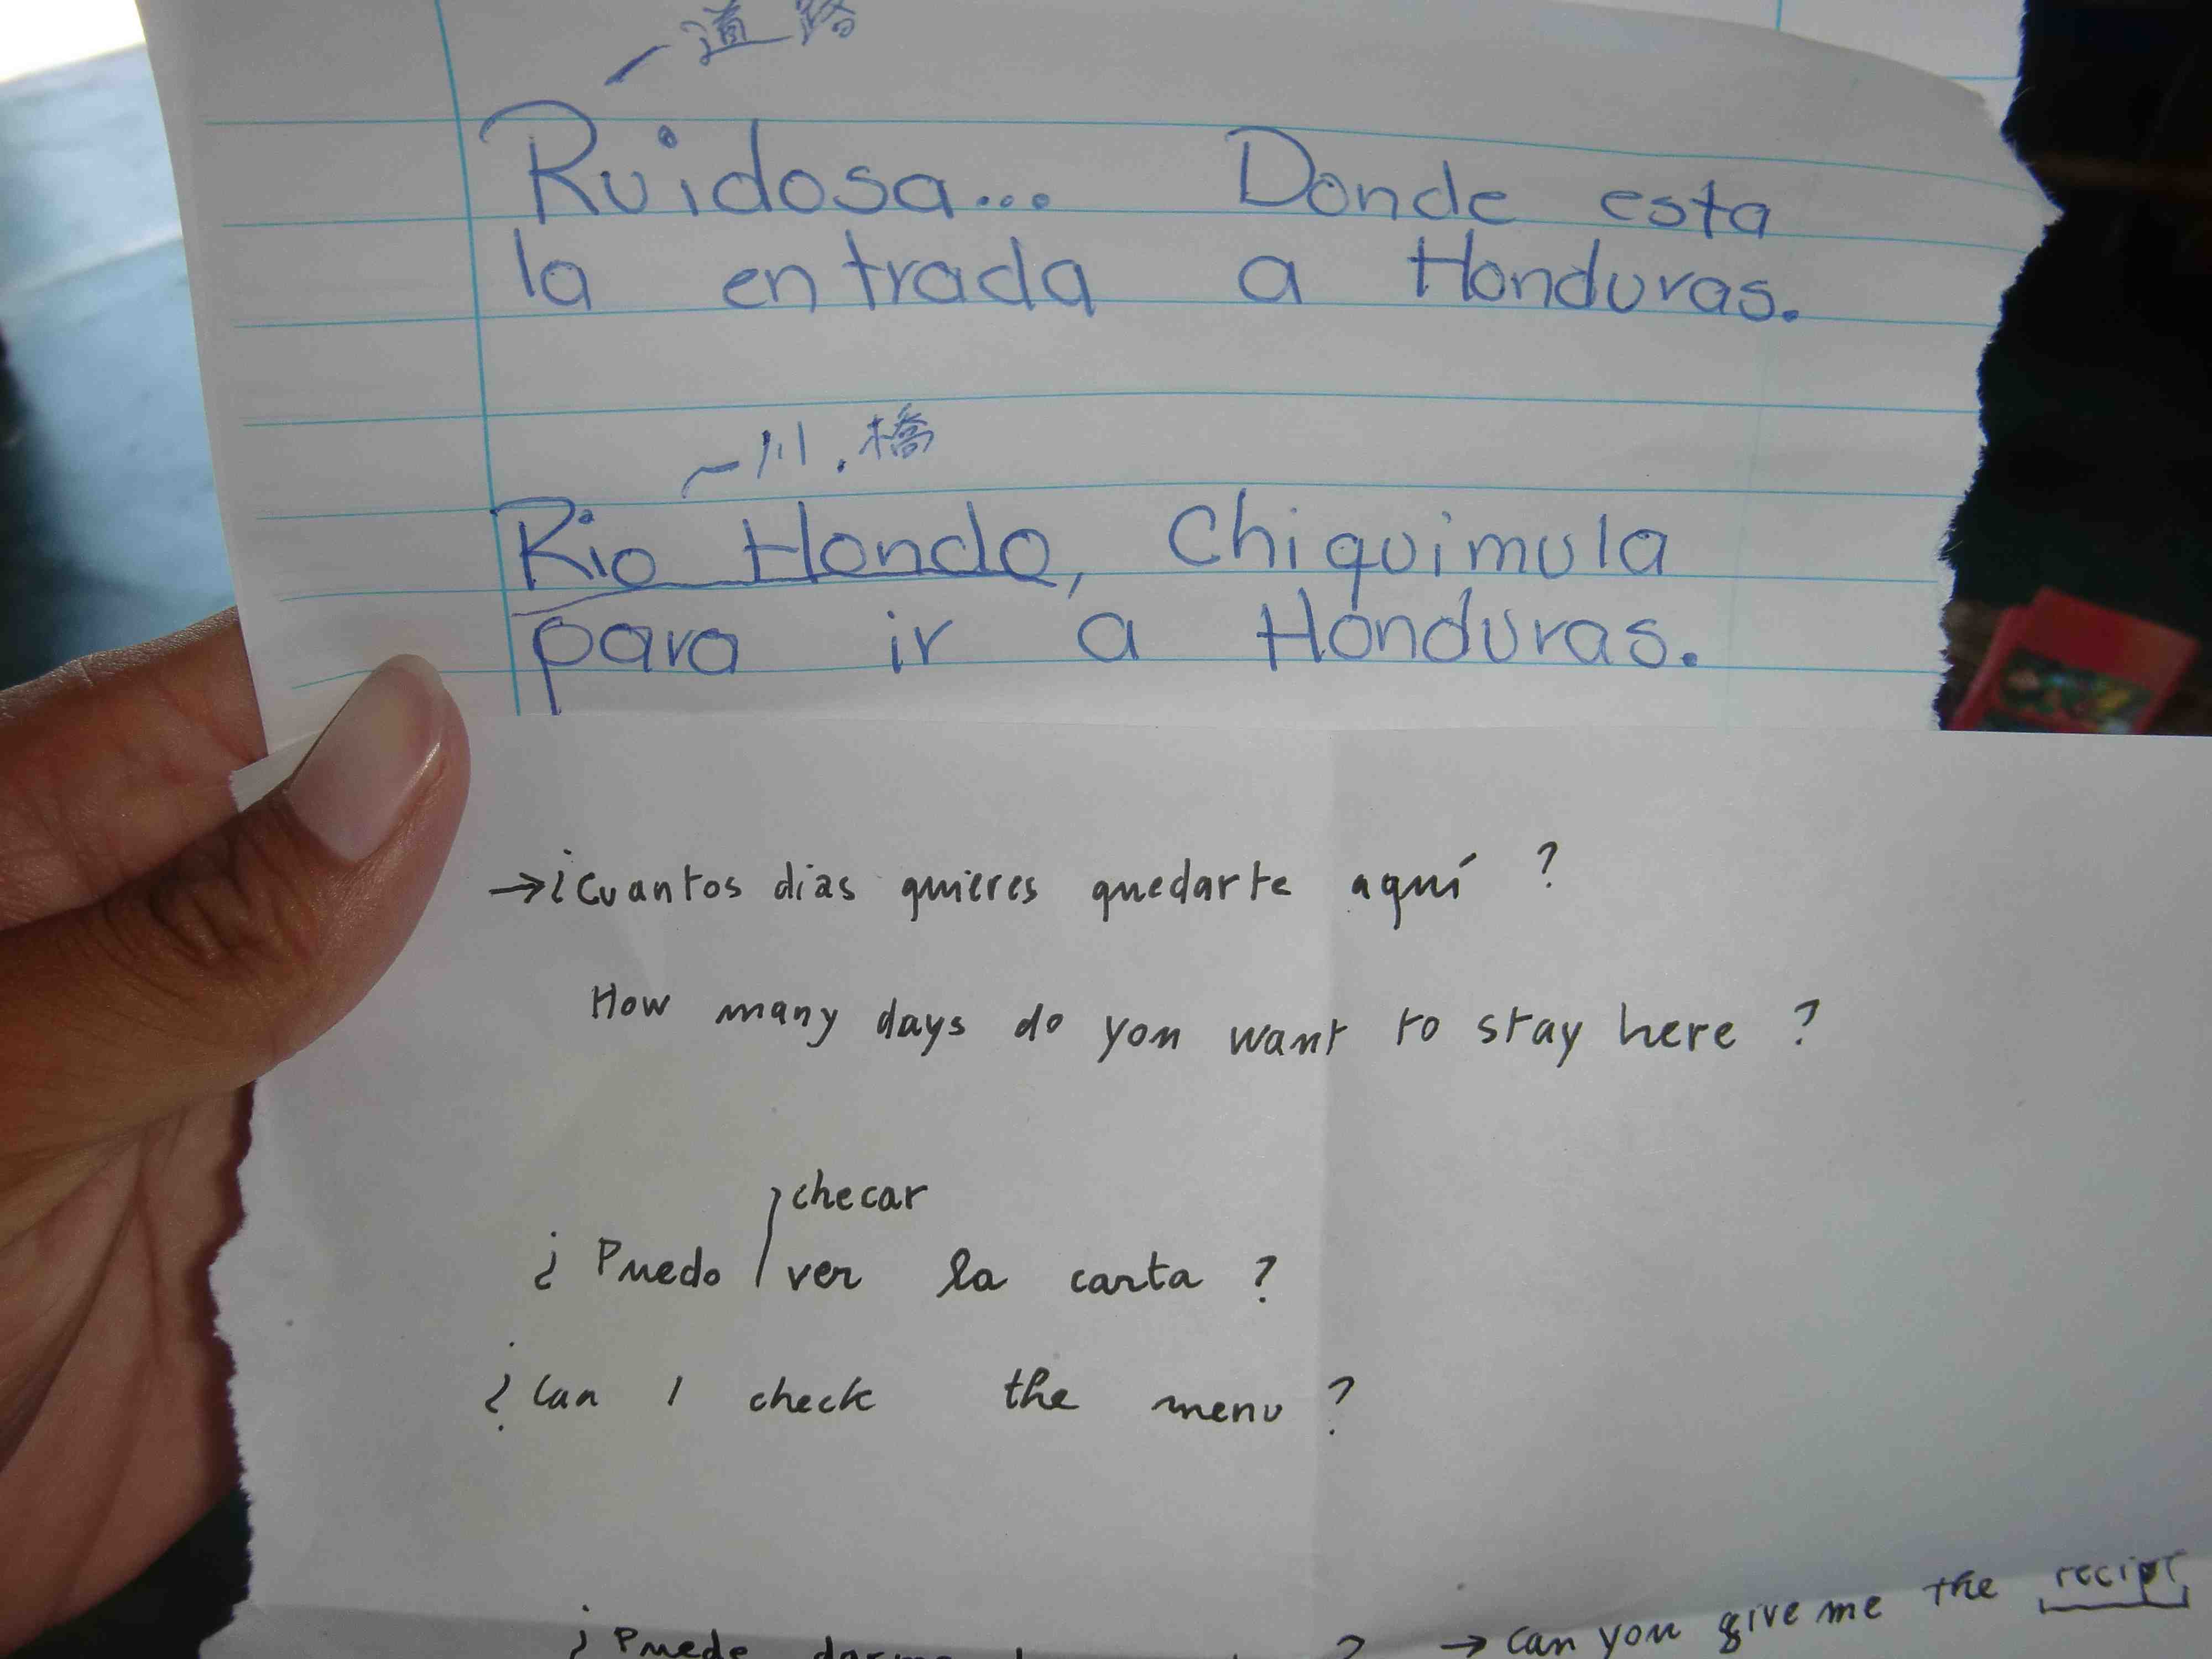 道路
Ruidosa... Donde esta
la entrada a Honduras.
川.橋
Rio Hondo, Chiquimula
para ir a Honduras.
→¿Cuantos dias quieres quedarte aquí ?
How many days do you want to stay here ?
checar
¿ Puedo ver la carta ?
¿ Can I check the menu ?
→ can you give me the recipt
¿ Puede ?